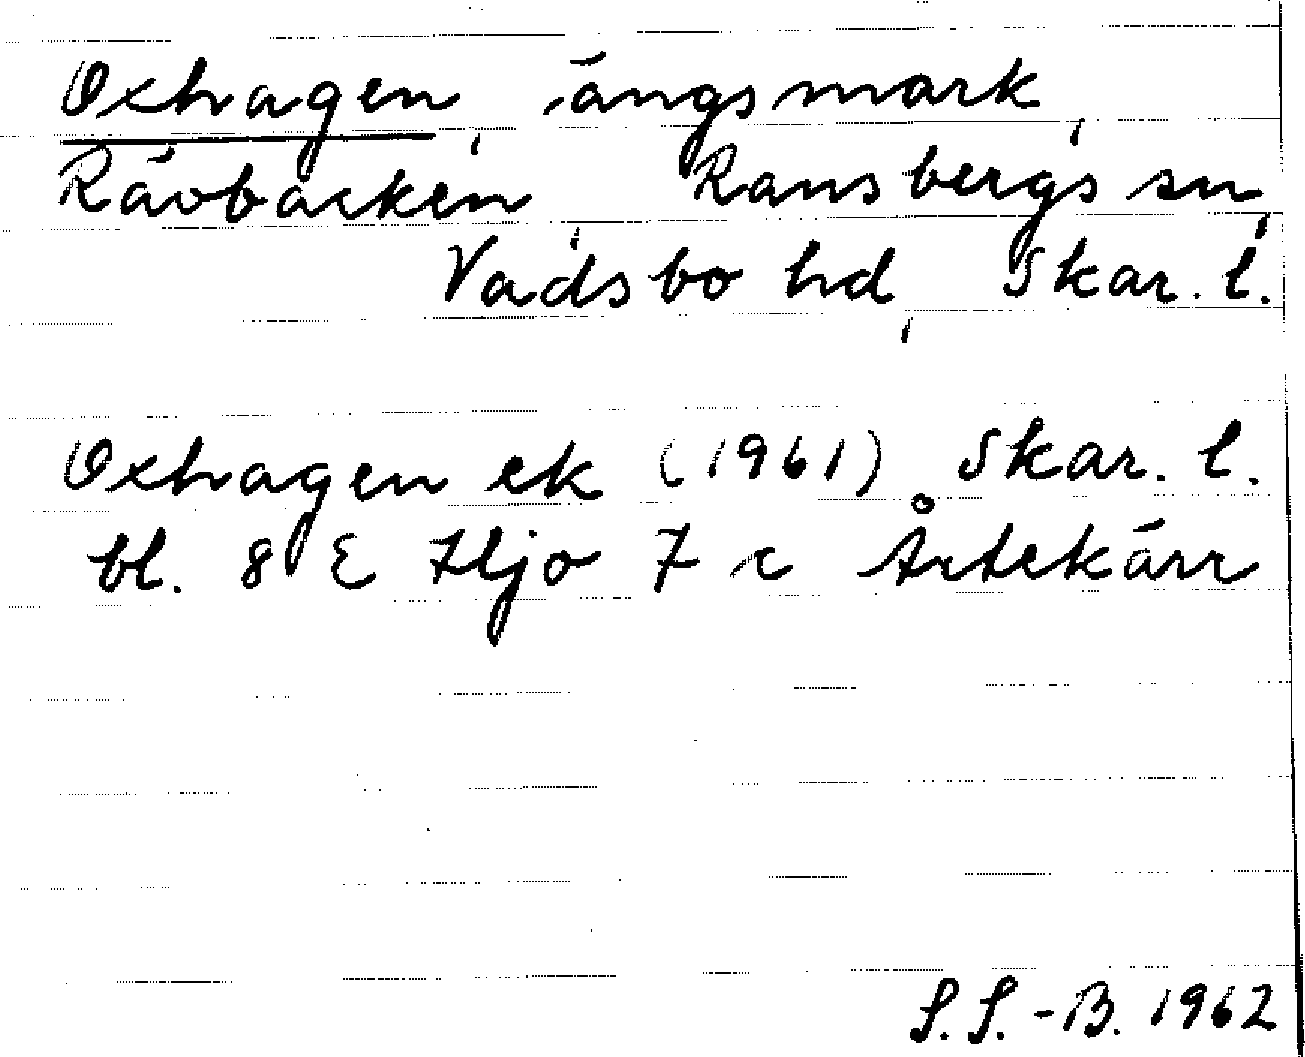 Oxhagen, ängsmark,
Rävbacken, Ransbergs sn,
Vadsbo hd, Skar. l.
Oxhagen ek (1961) Skar. l.
bl. 8 E Hjo 7 c Årtekärr
S. S.-B. 1962